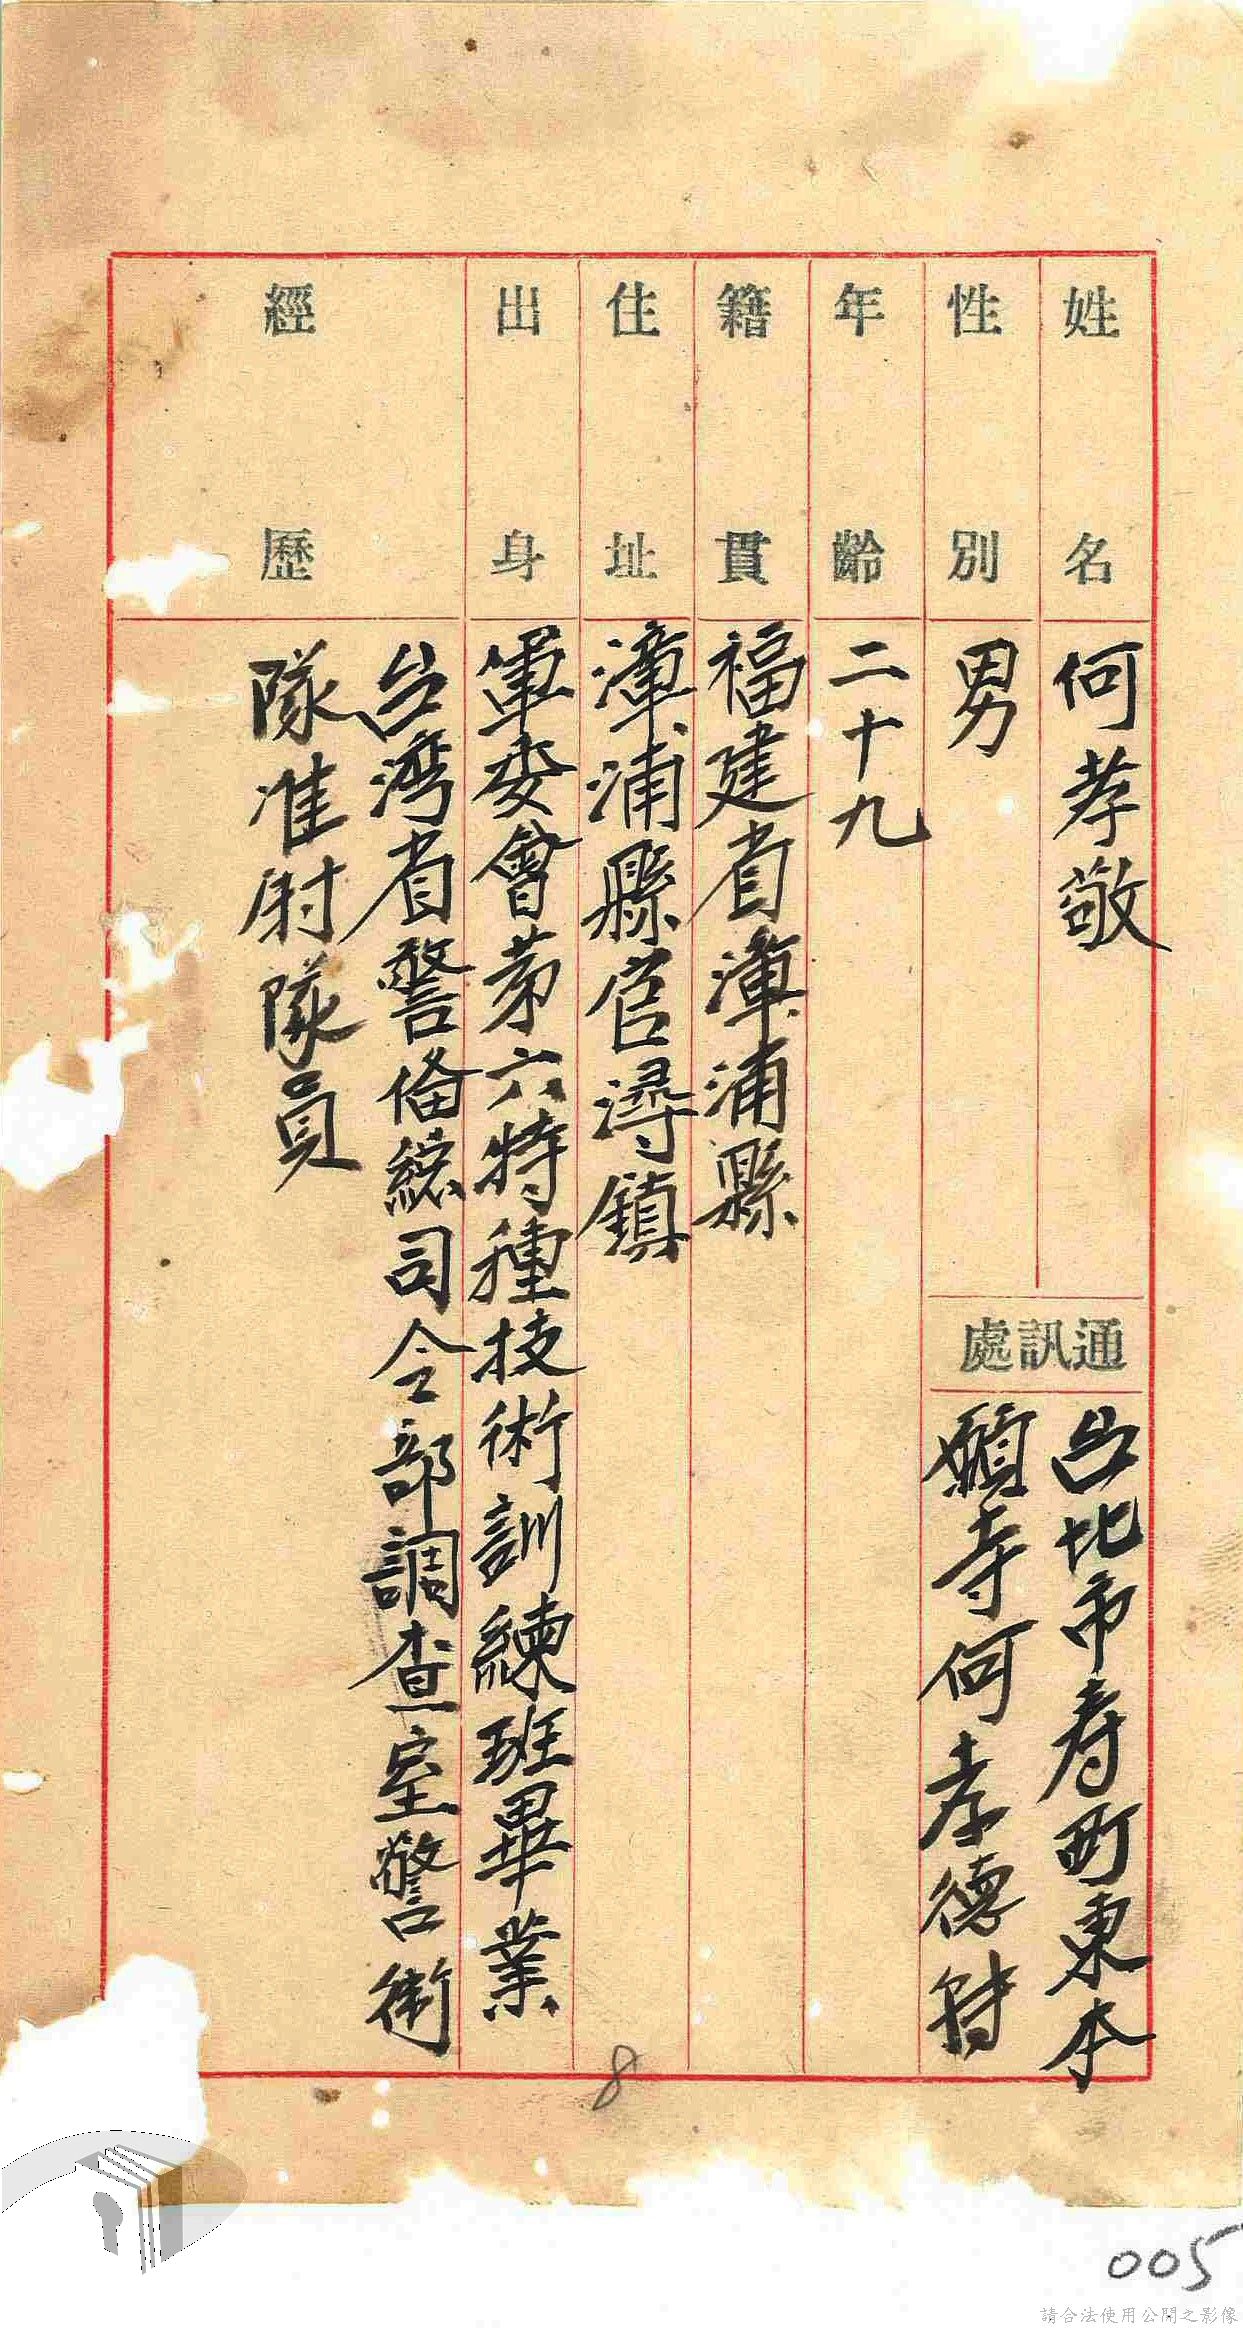 姓名 何孝敬
性別 男
通訊處
台北市寿町東本
願寺何孝德转
年齡 二十九
籍貫 福建省漳浦縣
住址 漳浦縣官潯鎮
出身 軍委會苐六特種技術訓練班畢業
經歷 台湾省警俻総司令部調查室警衛
隊准尉隊員
8
005
請合法使用公開之影像